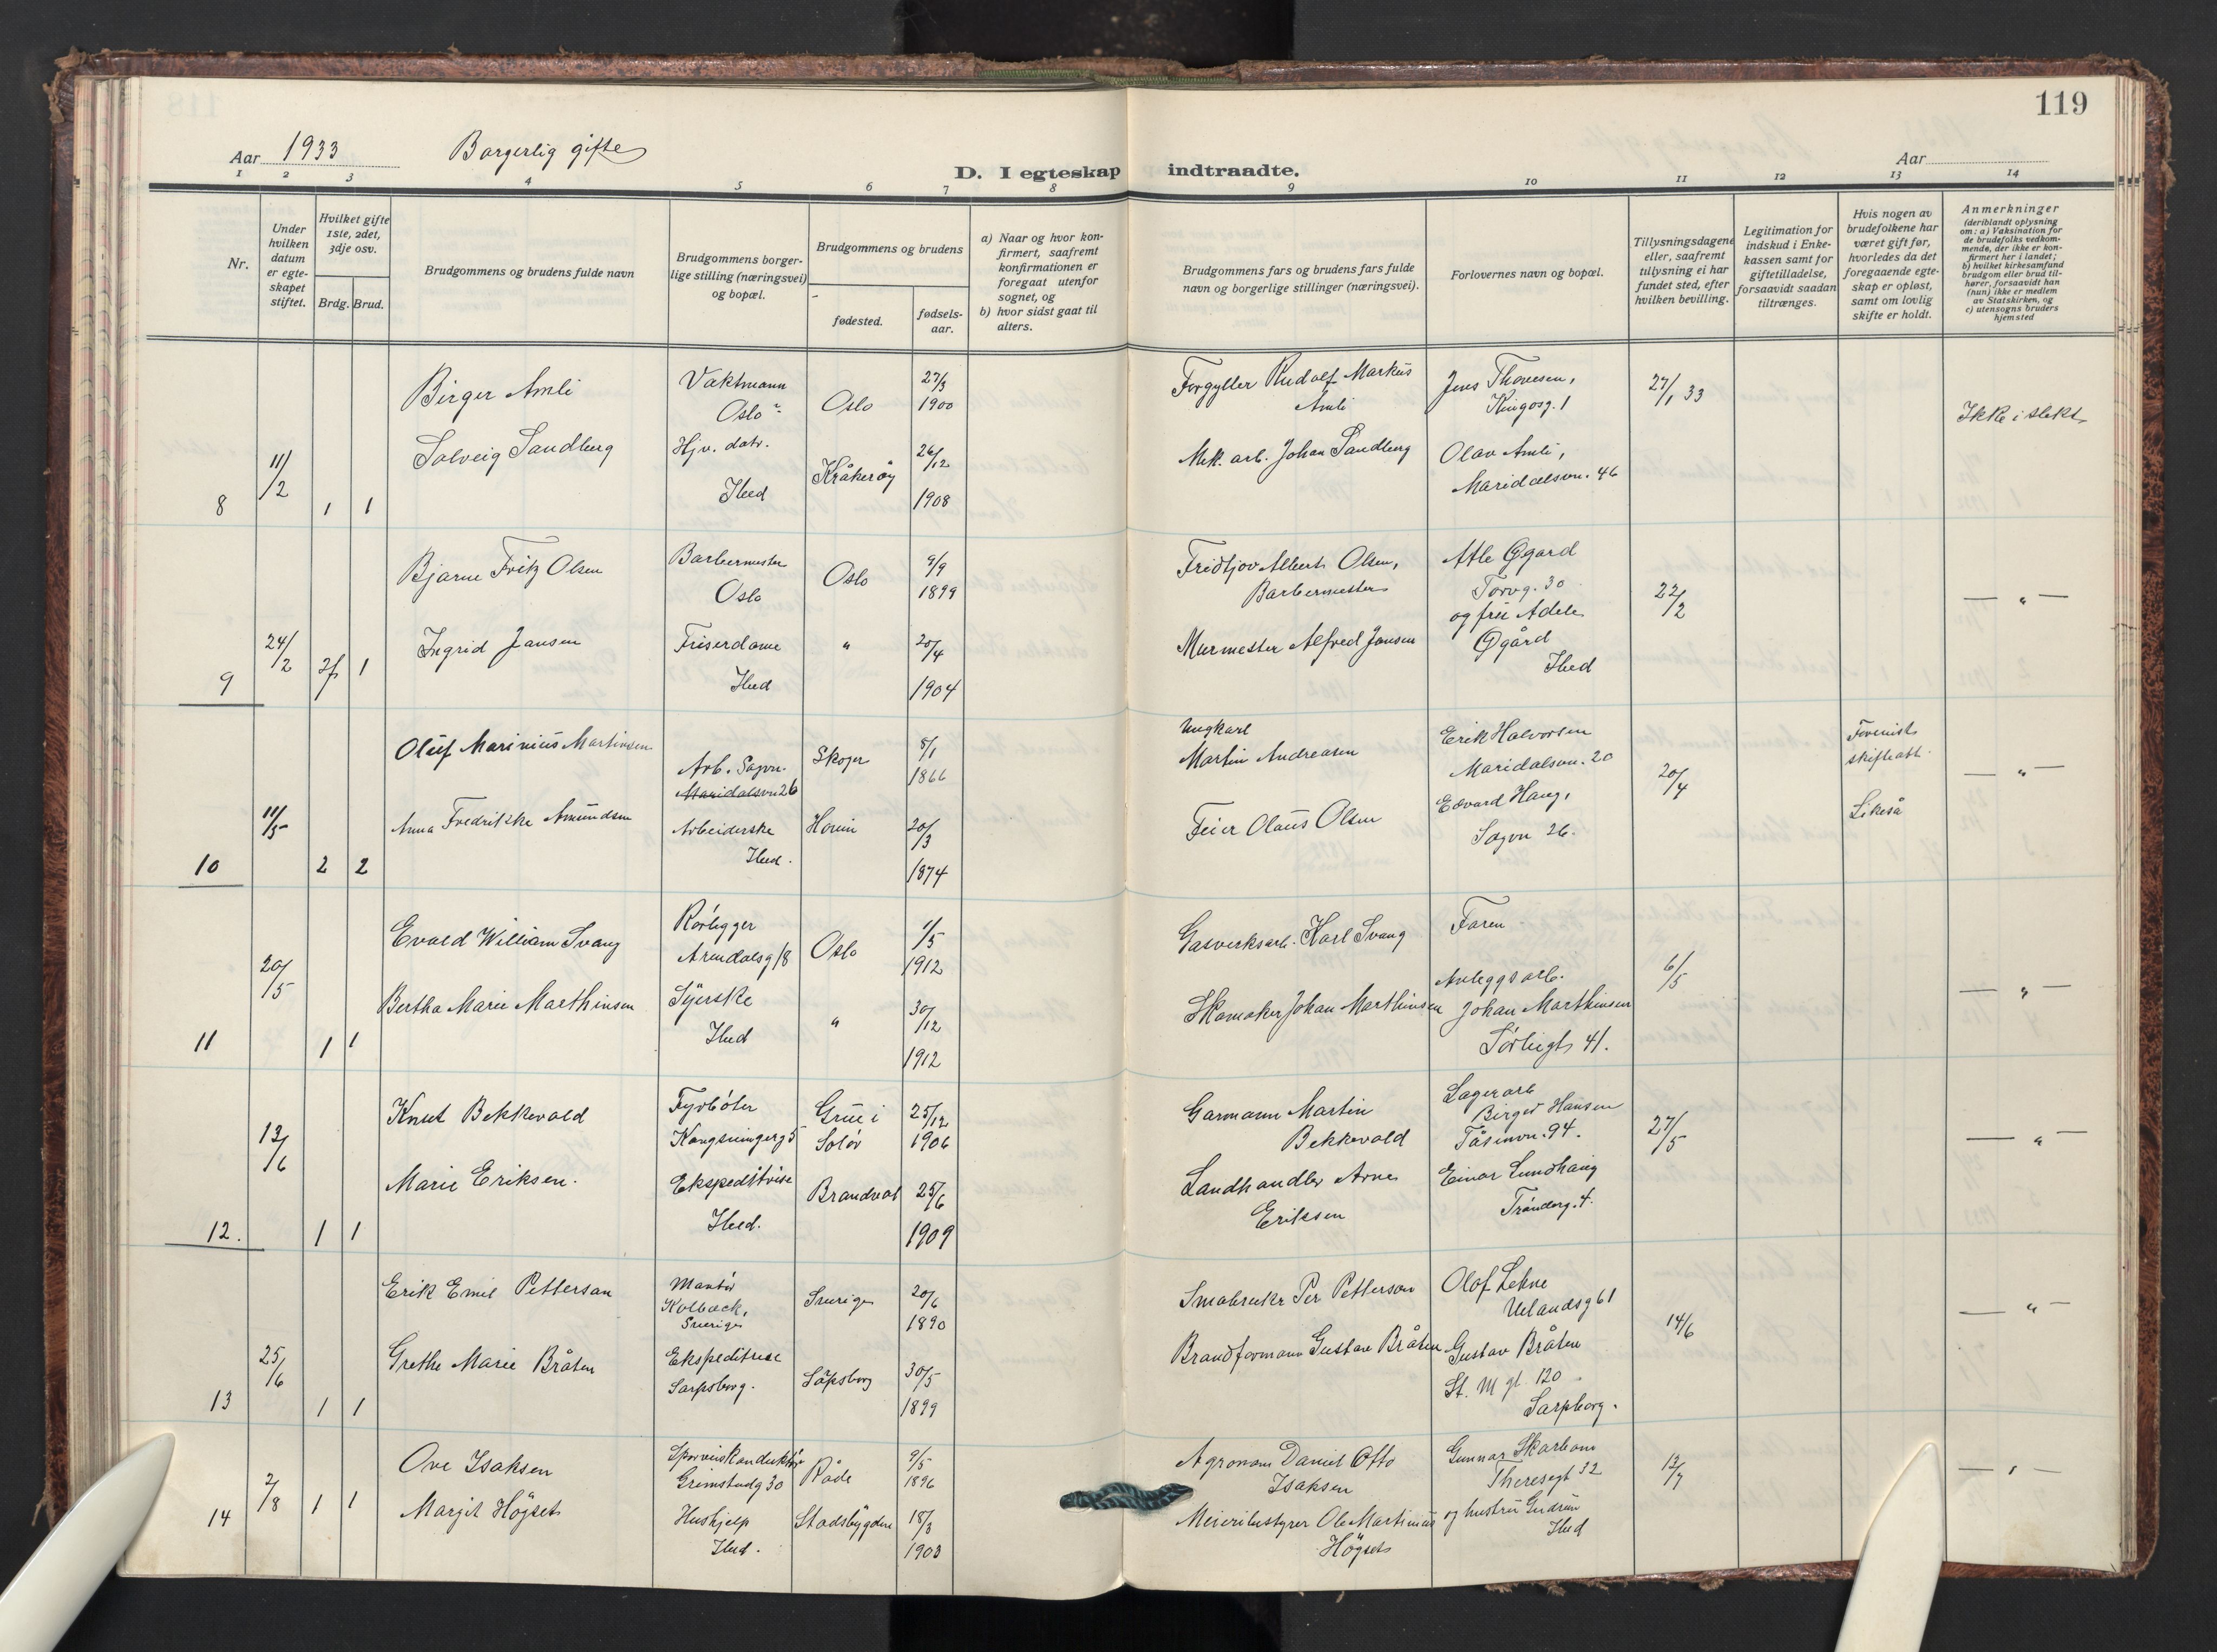 119
Aar 1933 Borgerlig gifte
D. I egteskap indtraadte.
Aar
1 2 3 4 5 6 7 8 9 10 11 12 13 14
Nr.
Under hvilken datum er egteskapet stiftet.
Hvilket gifte 1ste, 2det, 3dje osv.
Brdg. Brud.
Brudgommens og brudens fulde navn
Brudgommens borgerlige stilling (næringsvei) og bopæl.
Brudgommens og brudens
fødested.
fødselsaar.
a) Naar og hvor konfirmert, saafremt konfirmationen er foregaat utenfor sognet, og
b) hvor sidst gaat til alters.
Brudgommens fars og brudens fars fulde navn og borgerlige stillinger (næringsvei).
Forlovernes navn og bopæl.
Tillysningsdagene eller, saafremt tillysning ei har fundet sted, efter hvilken bevilling.
Legitimation for indskud i Enkekassen samt for giftetilladelse, forsaavidt saadan tiltrænges.
Hvis nogen av brudefolkene har været gift før, hvorledes da det foregaaende egteskap er opløst, samt om lovlig skifte er holdt.
Anmerkninger
(deriblandt oplysning om: a) Vaksination for de brudefolks vedkommende, der ikke er konfirmert her i landet; b) hvilket kirkesamfund brudgom eller brud tilhører, forsaavidt han (hun) ikke er medlem av Statskirken, og c) utensogns bruders hjemsted
8 11/2 1 1
Birger Amli Vaktmann Oslo Oslo 27/3 1900 Forgyller Rudolf Markus Amli Jens Thoresen, Kingosg. 1 27/1 33 Ikke i slekt
Solveig Sandberg Hjv. datr. Ibid Kråkerøy 26/12 1908 Mek. arb. Johan Sandberg Olav Amli, Maridalsvn. 46
9 24/2 2f 1
Bjarne Fritz Olsen Barbermester Oslo Oslo 9/9 1899 Fridtjov Albert Olsen, Barbermester Atle Øgard Torvg. 30 og fru Adele Øgård Ibid 22/2 — " —
Ingrid Jansen Friserdame Ibid " 20/4 1904 Murmester Alfred Jansen
10 11/5 2 2
Oluf Marinius Martinsen Arb. Sagvn. Maridalsvn 26 Skoger 5/1 1866 Ungkarl Martin Andreasen Erik Halvorsen Maridalsvn. 20 20/4 skifteatt. — " —
Anna Fredrikke Amundsen Arbeiderske Ibid. Hovin 20/3 1874 Feier Olaus Olsen Edvard Haug, Sagvn 26. Likeså
11 20/5 1 1
Evald William Svang Rørlegger Arendalsg 18 Oslo 1/5 1912 Gasverksarb. Karl Svang Faren 6/5 — " —
Bertha Marie Marthinsen Syerske Ibid " 30/12 1912 Skomaker Johan Marthinsen Anleggsarb. Johan Marthinsen Sørligt 41.
12. 13/6 1 1
Knut Bekkevold Fyrbøter Kongsvingerg 5 Grue i Solør 25/12 1906 Garmann Martin Bekkevold Lagerarb Birger Hansen Tåsenvn. 94. 27/5 — " —
Marie Eriksen. Ekspeditrise Ibid. Brandval 25/6 1909 Landhandler Arne Eriksen Einar Lundhaug Trønderg. 4.
13 25/6 1 1
Erik Emil Petterson Montør Kolbäck, Sverige Sverige 20/6 1890 Småbruker Per Petterson Olof Lehne Uelandsg 61 14/6 — " —
Grethe Marie Bråten Ekspeditrise Sarpsborg. Sarpsborg 30/5 1899 Brandformann Gustav Bråten Gustav Bråten St. M gt. 120 Sarpborg.
14 2/8 1 1
Ove Isaksen Sporveiskonduktør Grimstadg 30 Råde 9/5 1896 Agronom Daniel Otto Isaksen Gunnar Skarbom Theresegt 32 13/7 — " —
Margit Høgset Hushjelp Ibid. Stadsbygden 18/3 1903 Meieribestyrer Ole Martinius Høgset og hustru Gudrun Ibid